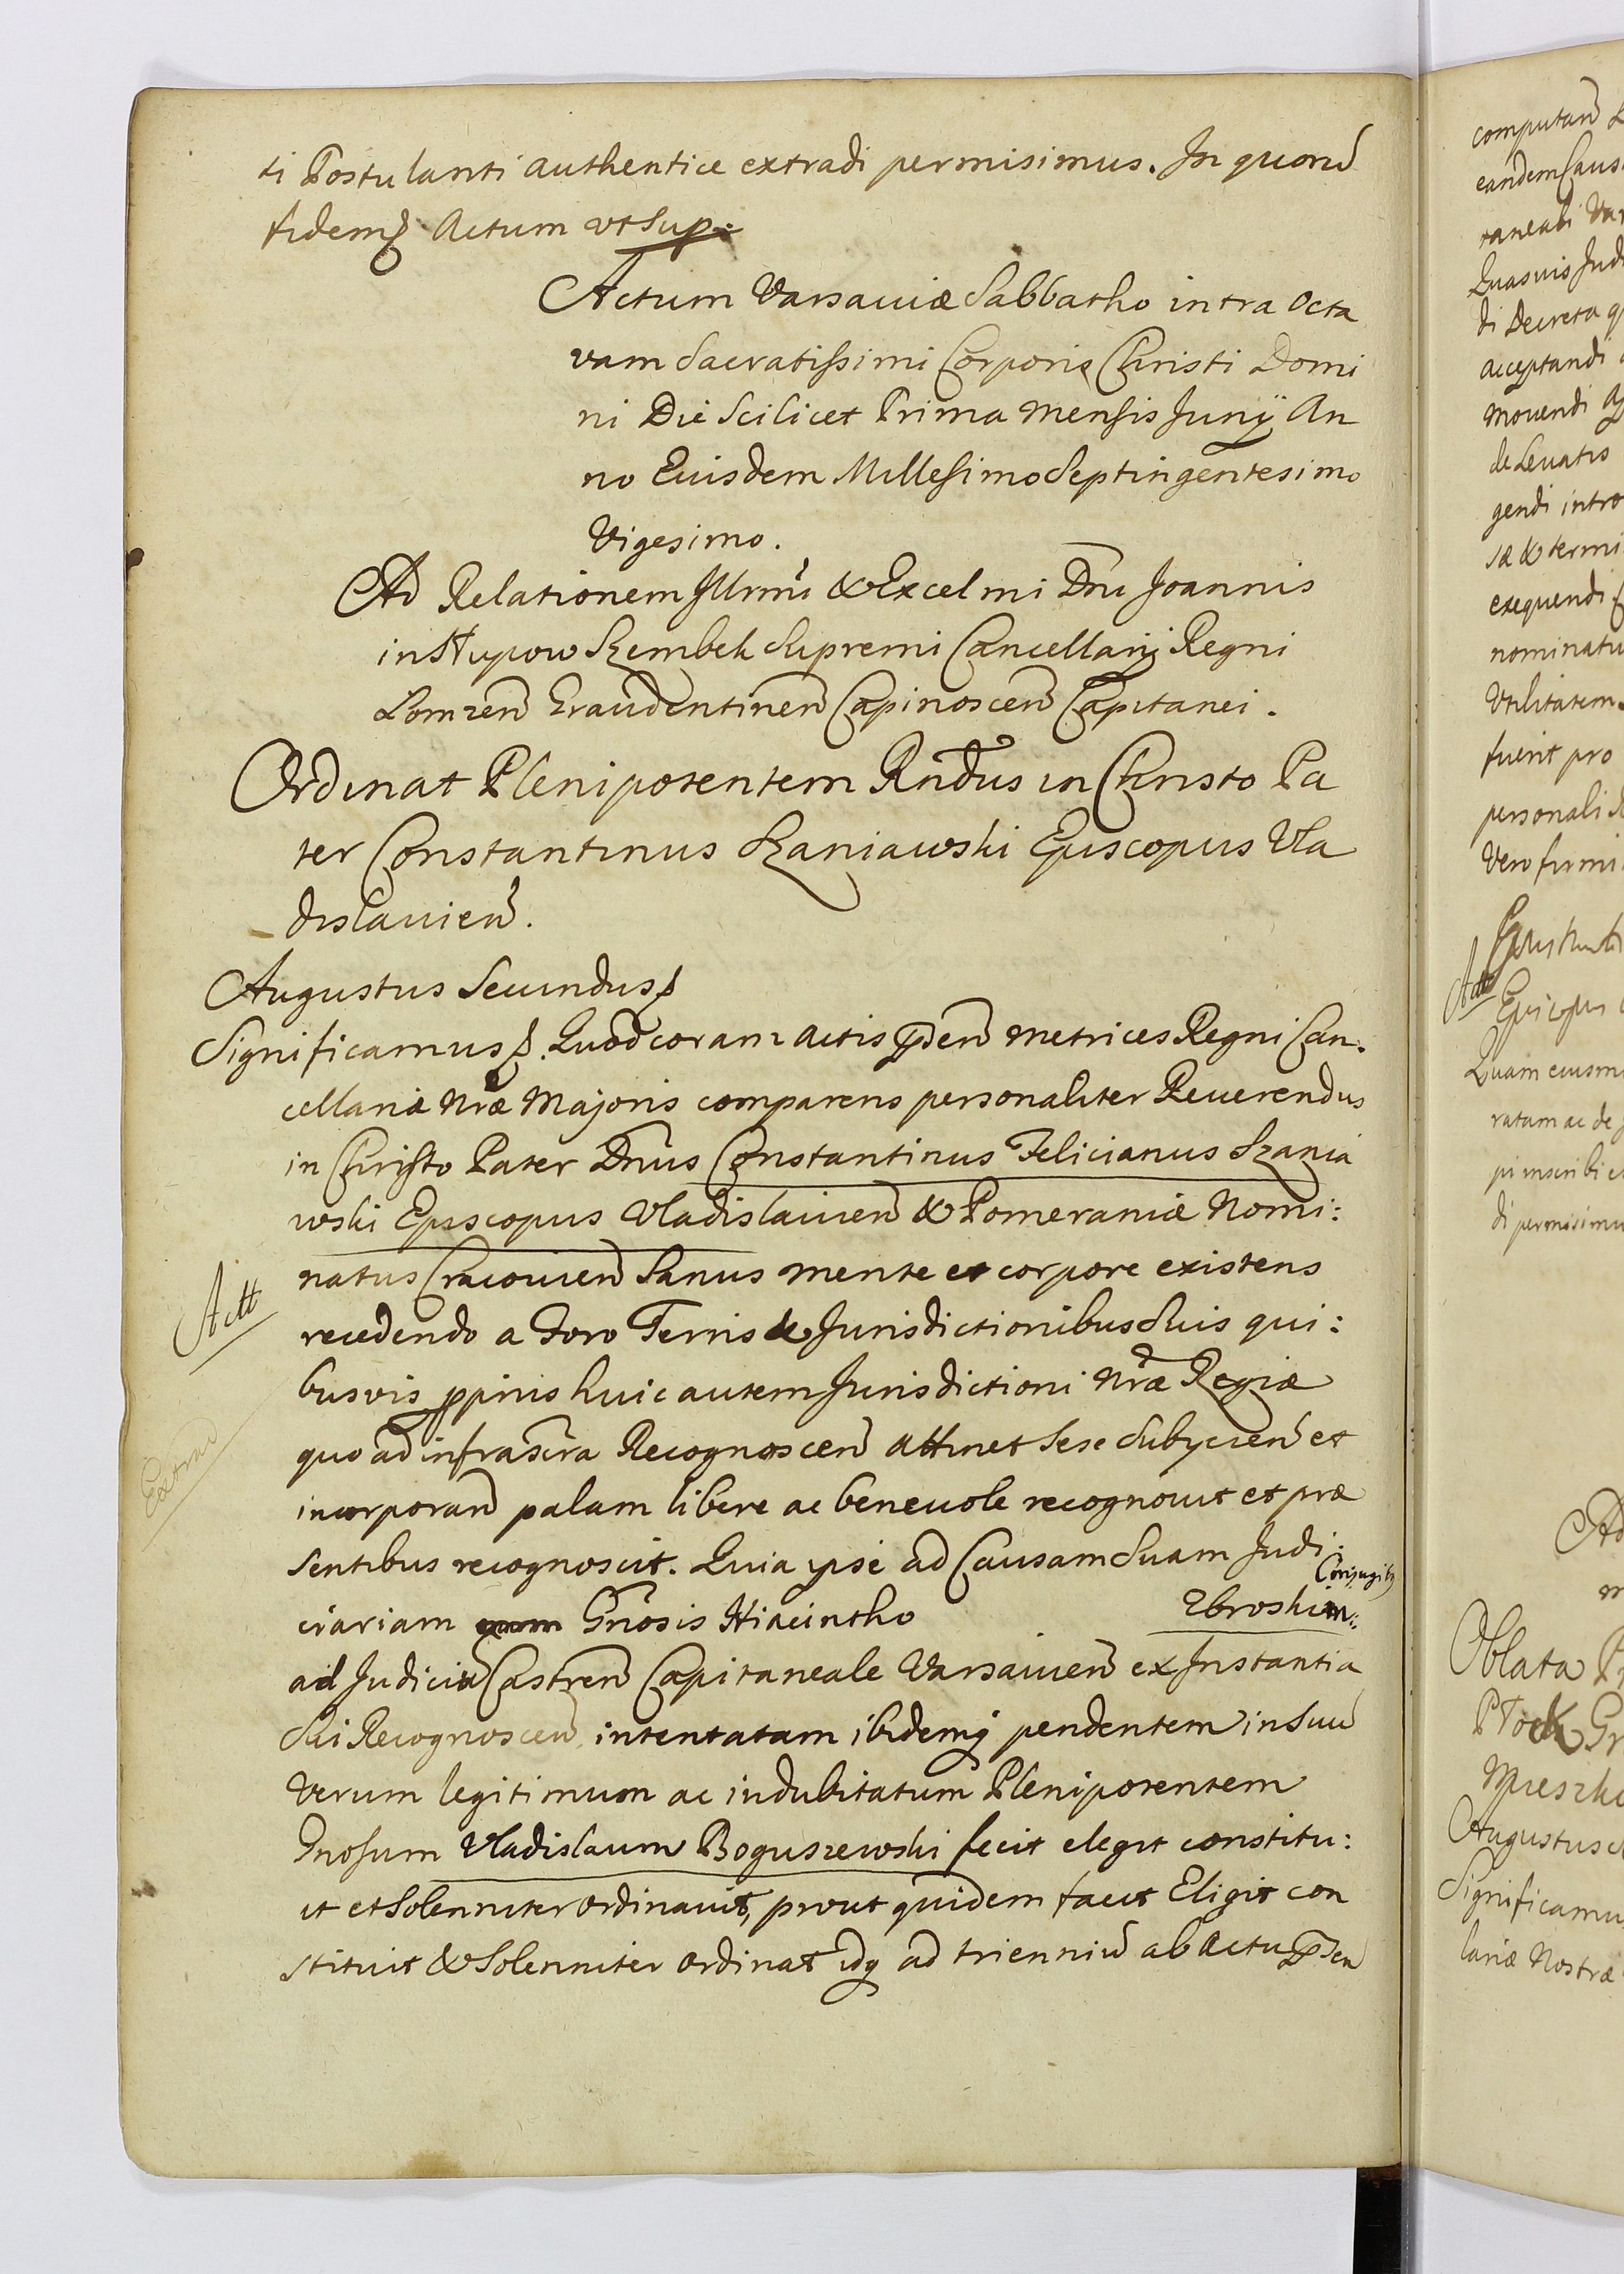 ti Postulanti authentice extradi permisimus. In quorũ
fidemꝗ Actum ut Sup:
Actum Varsaviæ Sabbatho intra Octa
vam Sacratissimi Corporis Christi Domi
ni Die Scilicet Prima Mensis Junÿ An
no Eiusdem Millesimo Septingentesimo
Vigesimo.
Ad Relationem Illrmi & Excelmi Dni Joannis
in Słupow Szembek Supremi Cancellarij Regni
Lomzeñ Graudentineñ Capinosceñ Capitanei.
Ordinat Plenipotentem Rndus in Christo Pa
ter Constantinus Szaniawski Episcopus Vla
dislavieñ.
Augustus Secundus
Significamus Quod coram Actis pñdeñ Metrices Regni Can.
cellariæ Nræ Majoris comparens personaliter Reverendus
in Christo Pater Dnus Constantinus Felicianus Szania
wski Episcopus Vladislavieñ & Pomeraniæ Nomi:
natus Cracovieñ Sanus mente et corpore existens
Actt
recedendo a Foro Terris & Jurisdictionibus Suis qui:
busvis ppriis huic autem Jurisdictioni Nræ Regiæ
quo ad infrascra Recognosceñ attinet Sese Subycieñ et
Extrad
incorporañ palam libere ac benevole recognovit et præ
sentibus recognoscit. Quia ipse ad Causam Suam Judi:
Conjugib9
ciariam Gnosis Hiacintho Zbroski
ad Judiciũ Castreñ Capitaneale Varsavieñ ex Instantia
Sui Recognosceñ intentatam ibidemꝗ pendentem in Suũ
Verum legitimum ac indubitatum Plenipotentem
Gnosum Vladislaum Boguszewski fecit elegit constitu:
it et Solenniter ordinavit, prout quidem facit Eligit con
stituit & Solenniter ordinat idꝗ ad trienniũ ab Actu pñseñ
computañ
eandem Caus
raneali Var
Quasvis Judi
di Decreta
acceptandi
movendi
de Levatis
gendi intro
sæ & termi
exequendi
nominatu
Utilitatem
fuerit pro
personali
Vero firmi
Actt
Episcopus
Quam eiusm
ratam ac de
pi inscribi
di permisimu
Ad
m
Oblata
Płock Gr
Mieszk
Augustus
Significamu
lariæ Nostræ